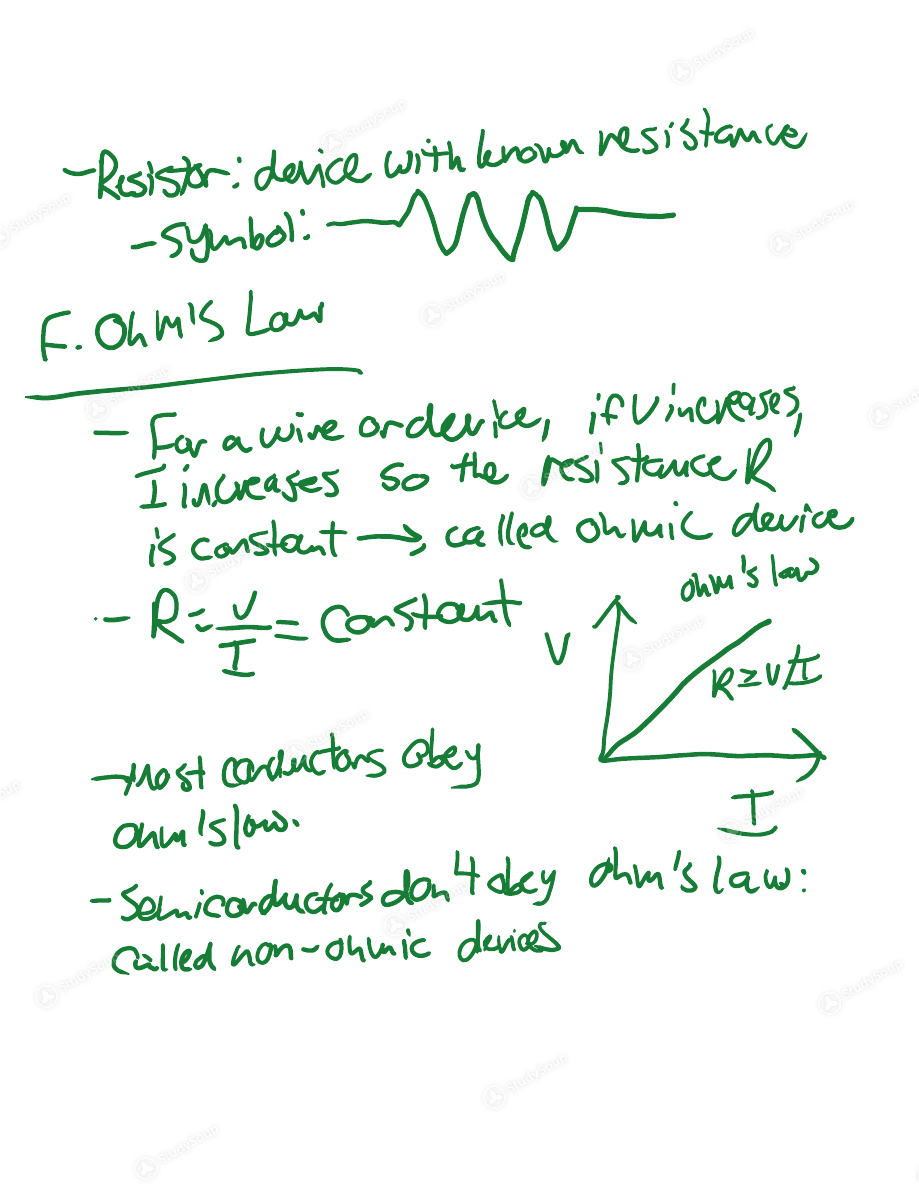 - Resistor: device with known resistance
- symbol:
F. Ohm's Law
- For a wire or device, if V increases,
I increases so the resistance R
is constant → called ohmic device
- R = V/I = constant
ohm's law
V
R = V/I
I
- Most conductors obey
Ohm's law.
- Semiconductors don't obey ohm's law:
Called non-ohmic devices
StudySoup